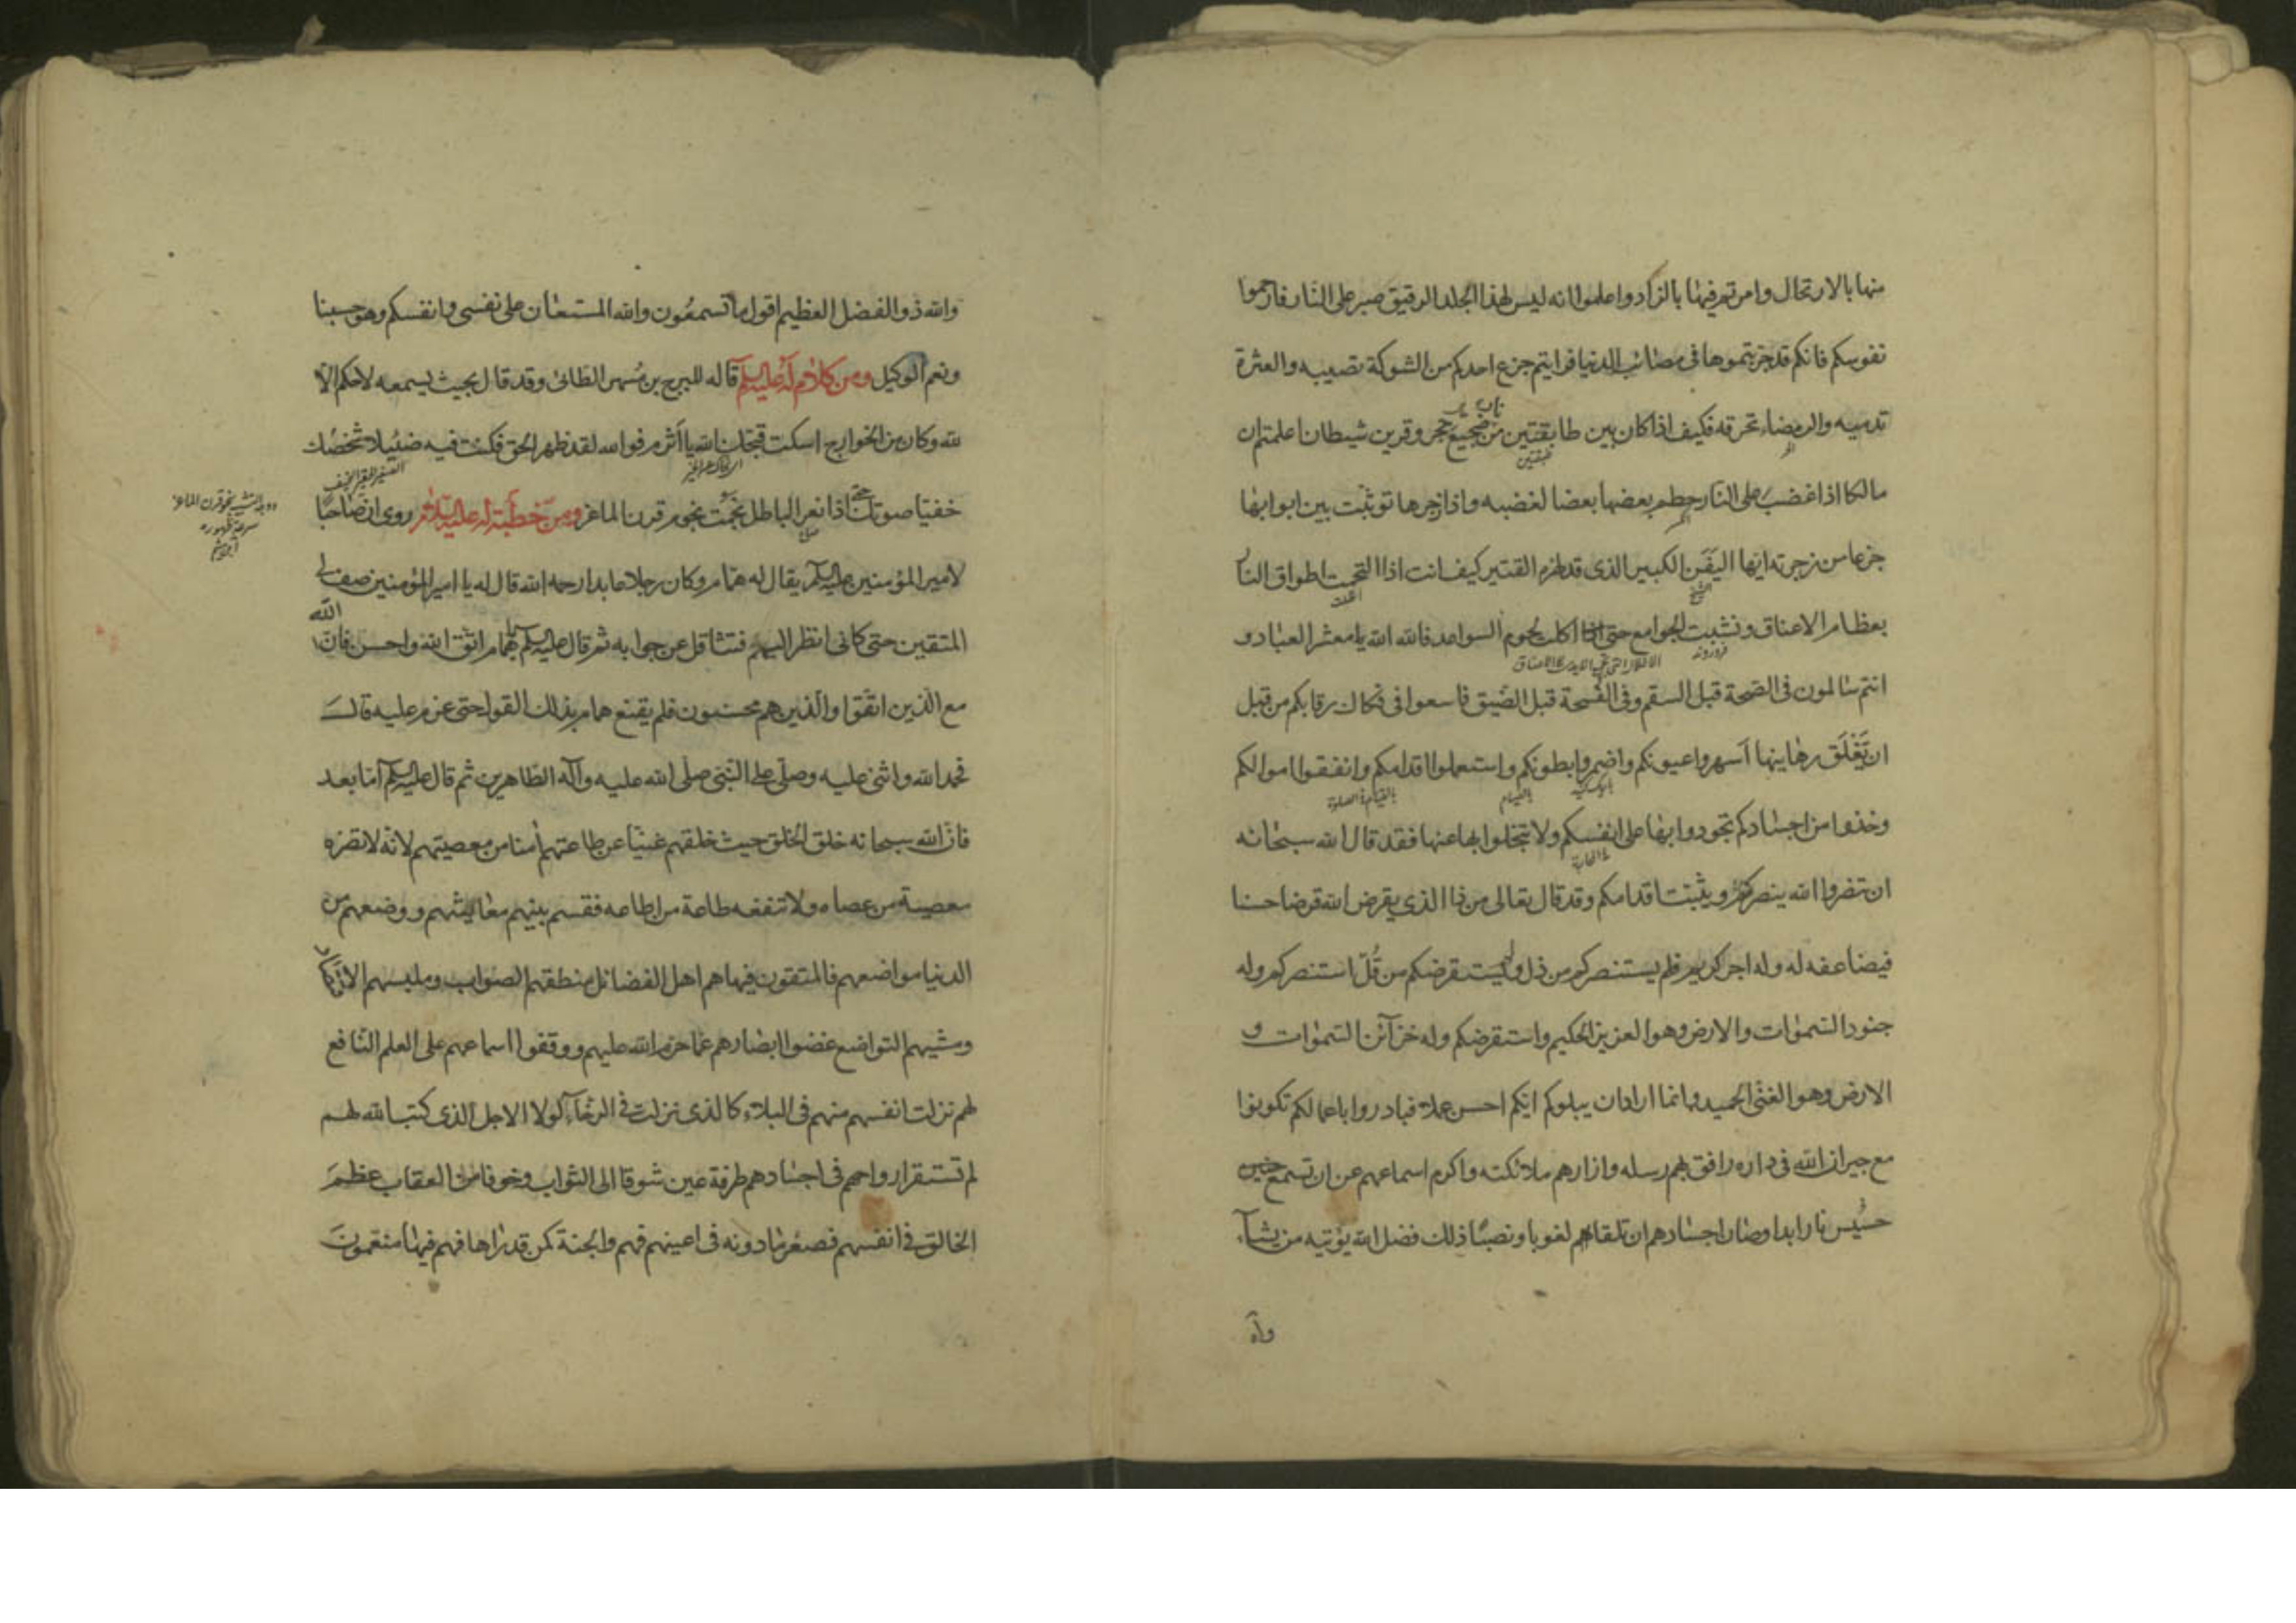 منها بالارتحال وامرتم فيها بالزاد واعلموا انه ليس لهذا الجلد الرقيق صبر على النار فارحموا
نفوسكم فانكم قد جربتموها فى مصائب الدنيا فرايتم جزع احدكم من الشوكة تصيبه والعثرة
تدميه والرمضاء تحرقه فكيف اذا كان بين طابقتين من ضجيع حجر وقرين شيطان اعلمتم ان
مالكا اذا غضب على النار حطم بعضها بعضا لغضبه واذا زجرها توثبت بين ابوابها
جزعا من زجرته ايها اليَفَن الكبير الذى قد لهزه القتير كيف انت اذا التحمت اطواق النار
بعظام الاعناق ونشبت الجوامع حتى اكلت لحوم السواعد فالله الله يا معشر العباد و
انتم سالمون فى الصحة قبل السقم وفى الفسحة قبل الضيق فاسعوا فى فكاك رقابكم من قبل
ان تَغْلَق رهاينها اسهروا عيونكم واضمروا بطونكم واستعملوا اقدامكم وانفقوا اموالكم
وخذوا من اجسادكم تجودوا بها على انفسكم ولا تبخلوا بها عنها فقد قال الله سبحانه
ان تنصروا الله ينصركم ويثبت اقدامكم وقد قال تعالى من ذا الذى يقرض الله قرضا حسنا
فيضاعفه له وله اجر كريم فلم يستنصركم من ذل ولم يستقرضكم من قُلّ استنصركم وله
جنود السموات والارض وهو العزيز الحكيم واستقرضكم وله خزآئن السموات و
الارض وهو الغنى الحميد وانما اراد ان يبلوكم ايكم احسن عملا فبادروا باعمالكم تكونوا
مع جيران الله فى داره رافق بهم رسله وازارهم ملائكته واكرم اسماعهم عن ان تسمع
حسيس نار ابدا وصان اجسادهم ان تلقى لغوبا ونصبا ذلك فضل الله يؤتيه من يشآء
والله
والله ذو الفضل العظيم اقول ما تسمعون والله المستعان على نفسى وانفسكم وهو حسبنا
ونعم الوكيل ومن كلام له عليه السلم قاله للبرج بن مسهر الطائى وقد قال بحيث يسمعه لا حكم الا
لله وكان من الخوارج اسكت قبحك الله يا اثرم فوالله لقد ظهر الحق فكنت فيه ضئيلا شخصك
خفيا صوتك حتى اذا نعر الباطل نجمت نجوم قرن الماعز ومن خطبة له عليه السلام روى ان صاحبا
لامير المؤمنين عليه السلم يقال له همام وكان رجلا عابدا رحمه الله قال له يا امير المؤمنين صف لى
المتقين حتى كانى انظر اليهم فتثاقل عن جوابه ثم قال عليه السلم يا همام اتق الله واحسن فان الله
مع الذين اتقوا والذين هم محسنون فلم يقنع همام بذلك القول حتى عزم عليه قال
فحمد الله واثنى عليه وصلى على النبى صلى الله عليه وآله الطاهرين ثم قال عليه السلم اما بعد
فان الله سبحانه خلق الخلق حيث خلقهم غنيا عن طاعتهم آمنا من معصيتهم لانه لا تضره
معصية من عصاه ولا تنفعه طاعة من اطاعه فقسم بينهم معايشهم ووضعهم من
الدنيا مواضعهم فالمتقون فيها هم اهل الفضائل منطقهم الصواب وملبسهم الاقتصاد
ومشيهم التواضع غضوا ابصارهم عما حرم الله عليهم ووقفوا اسماعهم على العلم النافع
لهم نزلت انفسهم منهم فى البلاء كالذى نزلت فى الرخآء لولا الاجل الذى كتب الله لهم
لم تستقر ارواحهم فى اجسادهم طرفة عين شوقا الى الثواب وخوفا من العقاب عظم
الخالق فى انفسهم فصغر ما دونه فى اعينهم فهم والجنة كمن قد راها فهم فيها منعمون